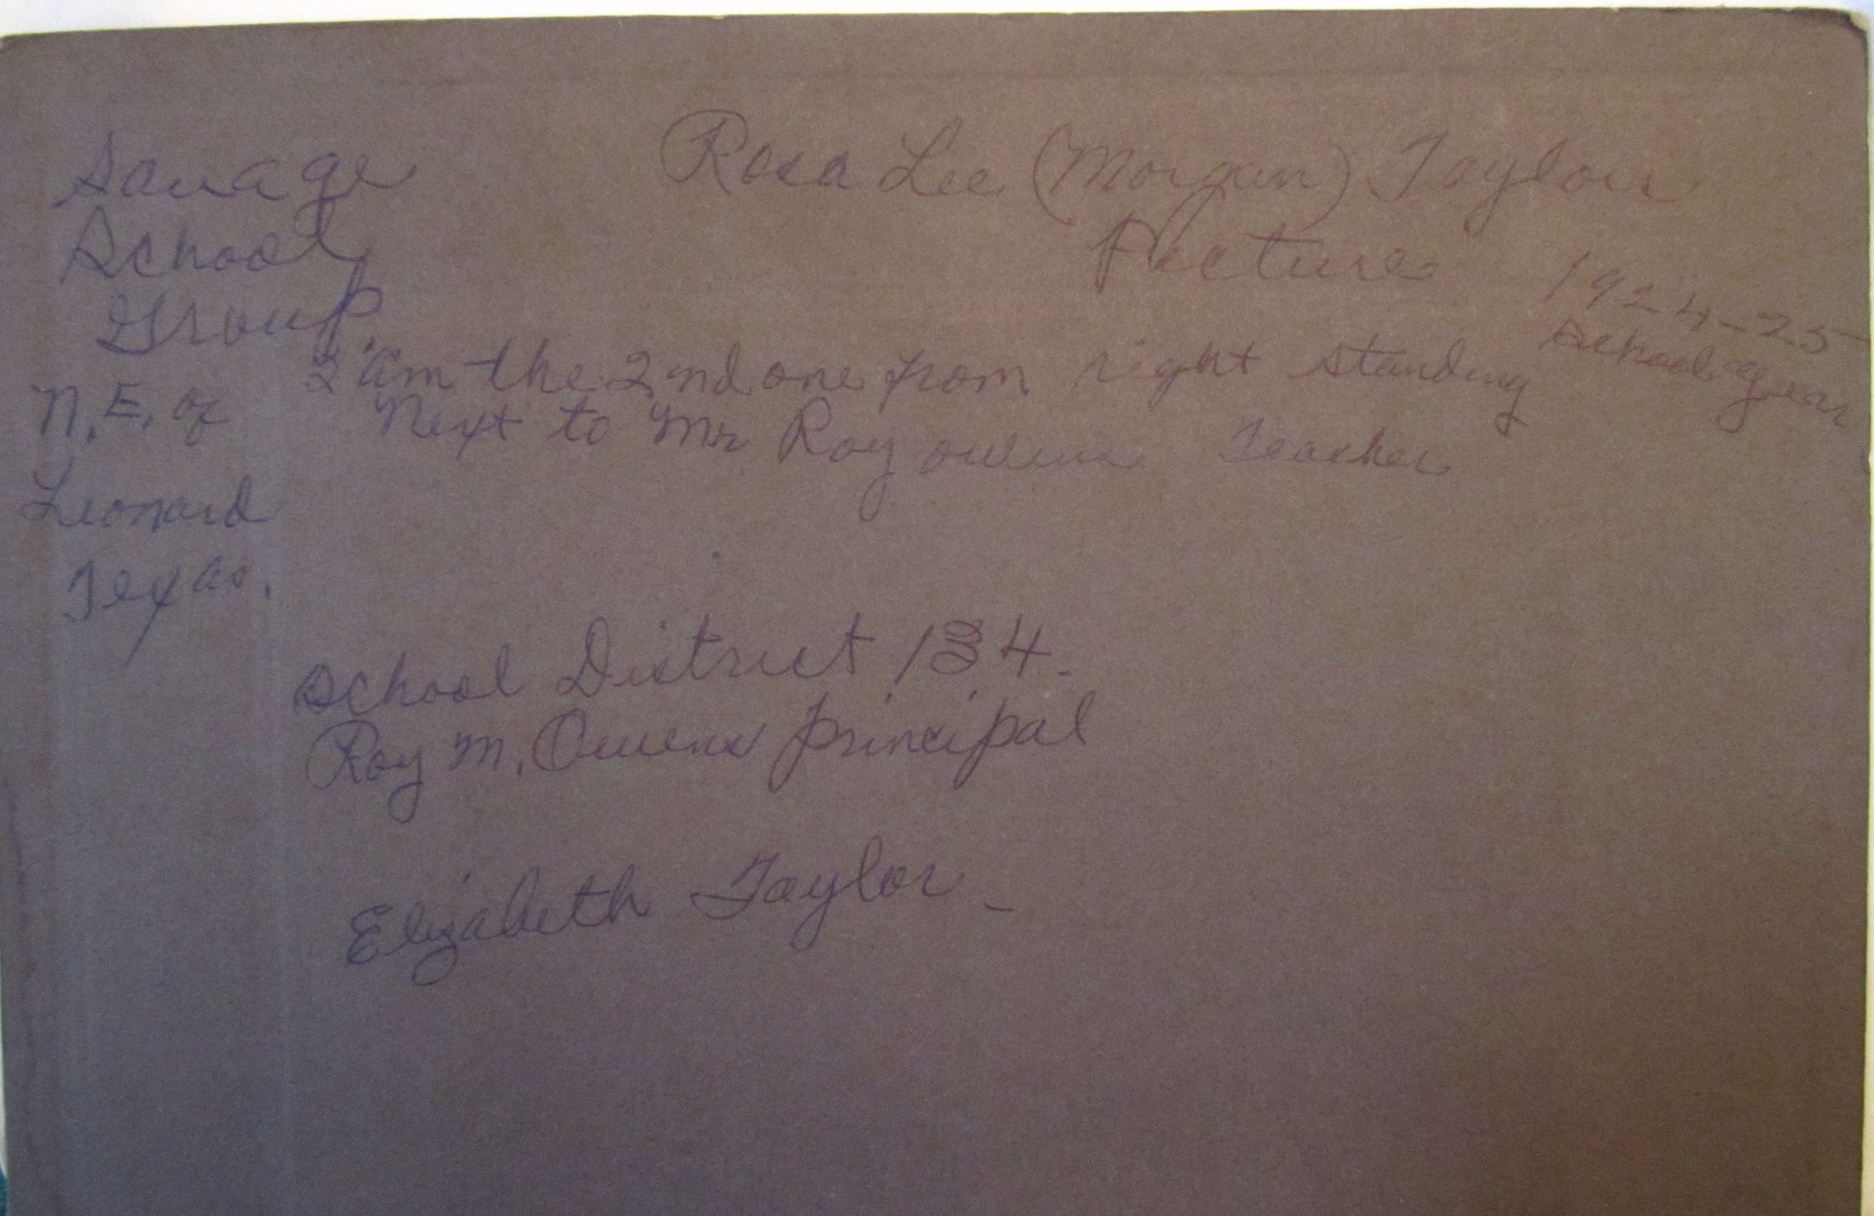 Savage
School
Group
N.E. of
Leonard
Texas.
Rosa Lee (Morgan) Taylor
Picture
1924-25
School year
I am the 2nd one from right standing
Next to Mr Roy owens Teacher
School District 134.
Roy M. Owens principal
Elizabeth Taylor -